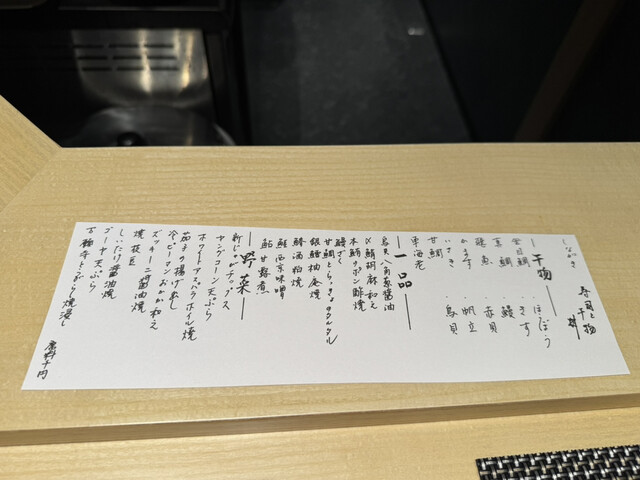 しながき
寿司と
干物
干物
金目鯛・ほうぼう
真鯛・きす
穂魚・鰻
かます・赤貝
いさき・帆立
甘鯛・鳥貝
車海老
一品
鳥貝八角蒸醤油
〆鯖胡麻和え
本鯖ポン酢焼
鰻ざく
甘鯛とらっきょうのタルタル
銀鱈柚庵焼
鰆酒粕焼
鮭西京味噌
鮎甘露煮
野菜
新じゃがチップス
ヤングコーン天ぷら
ホワイトアスパラホイル焼
茄子の揚げ出し
冷ピーマンおかか和え
ズッキーニ醤油焼
焼枝豆
しいたけ醤油焼
ゴーヤ天ぷら
万願寺とうがらし焼浸し